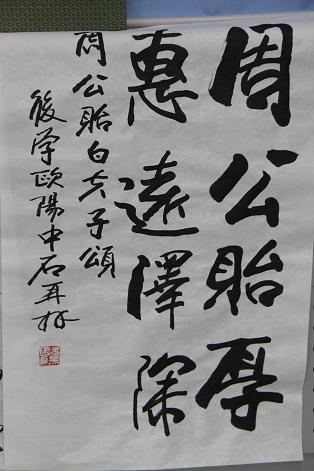 周公貽厚
惠遠澤深
周公貽白先子頌
後学歐陽中石再拜